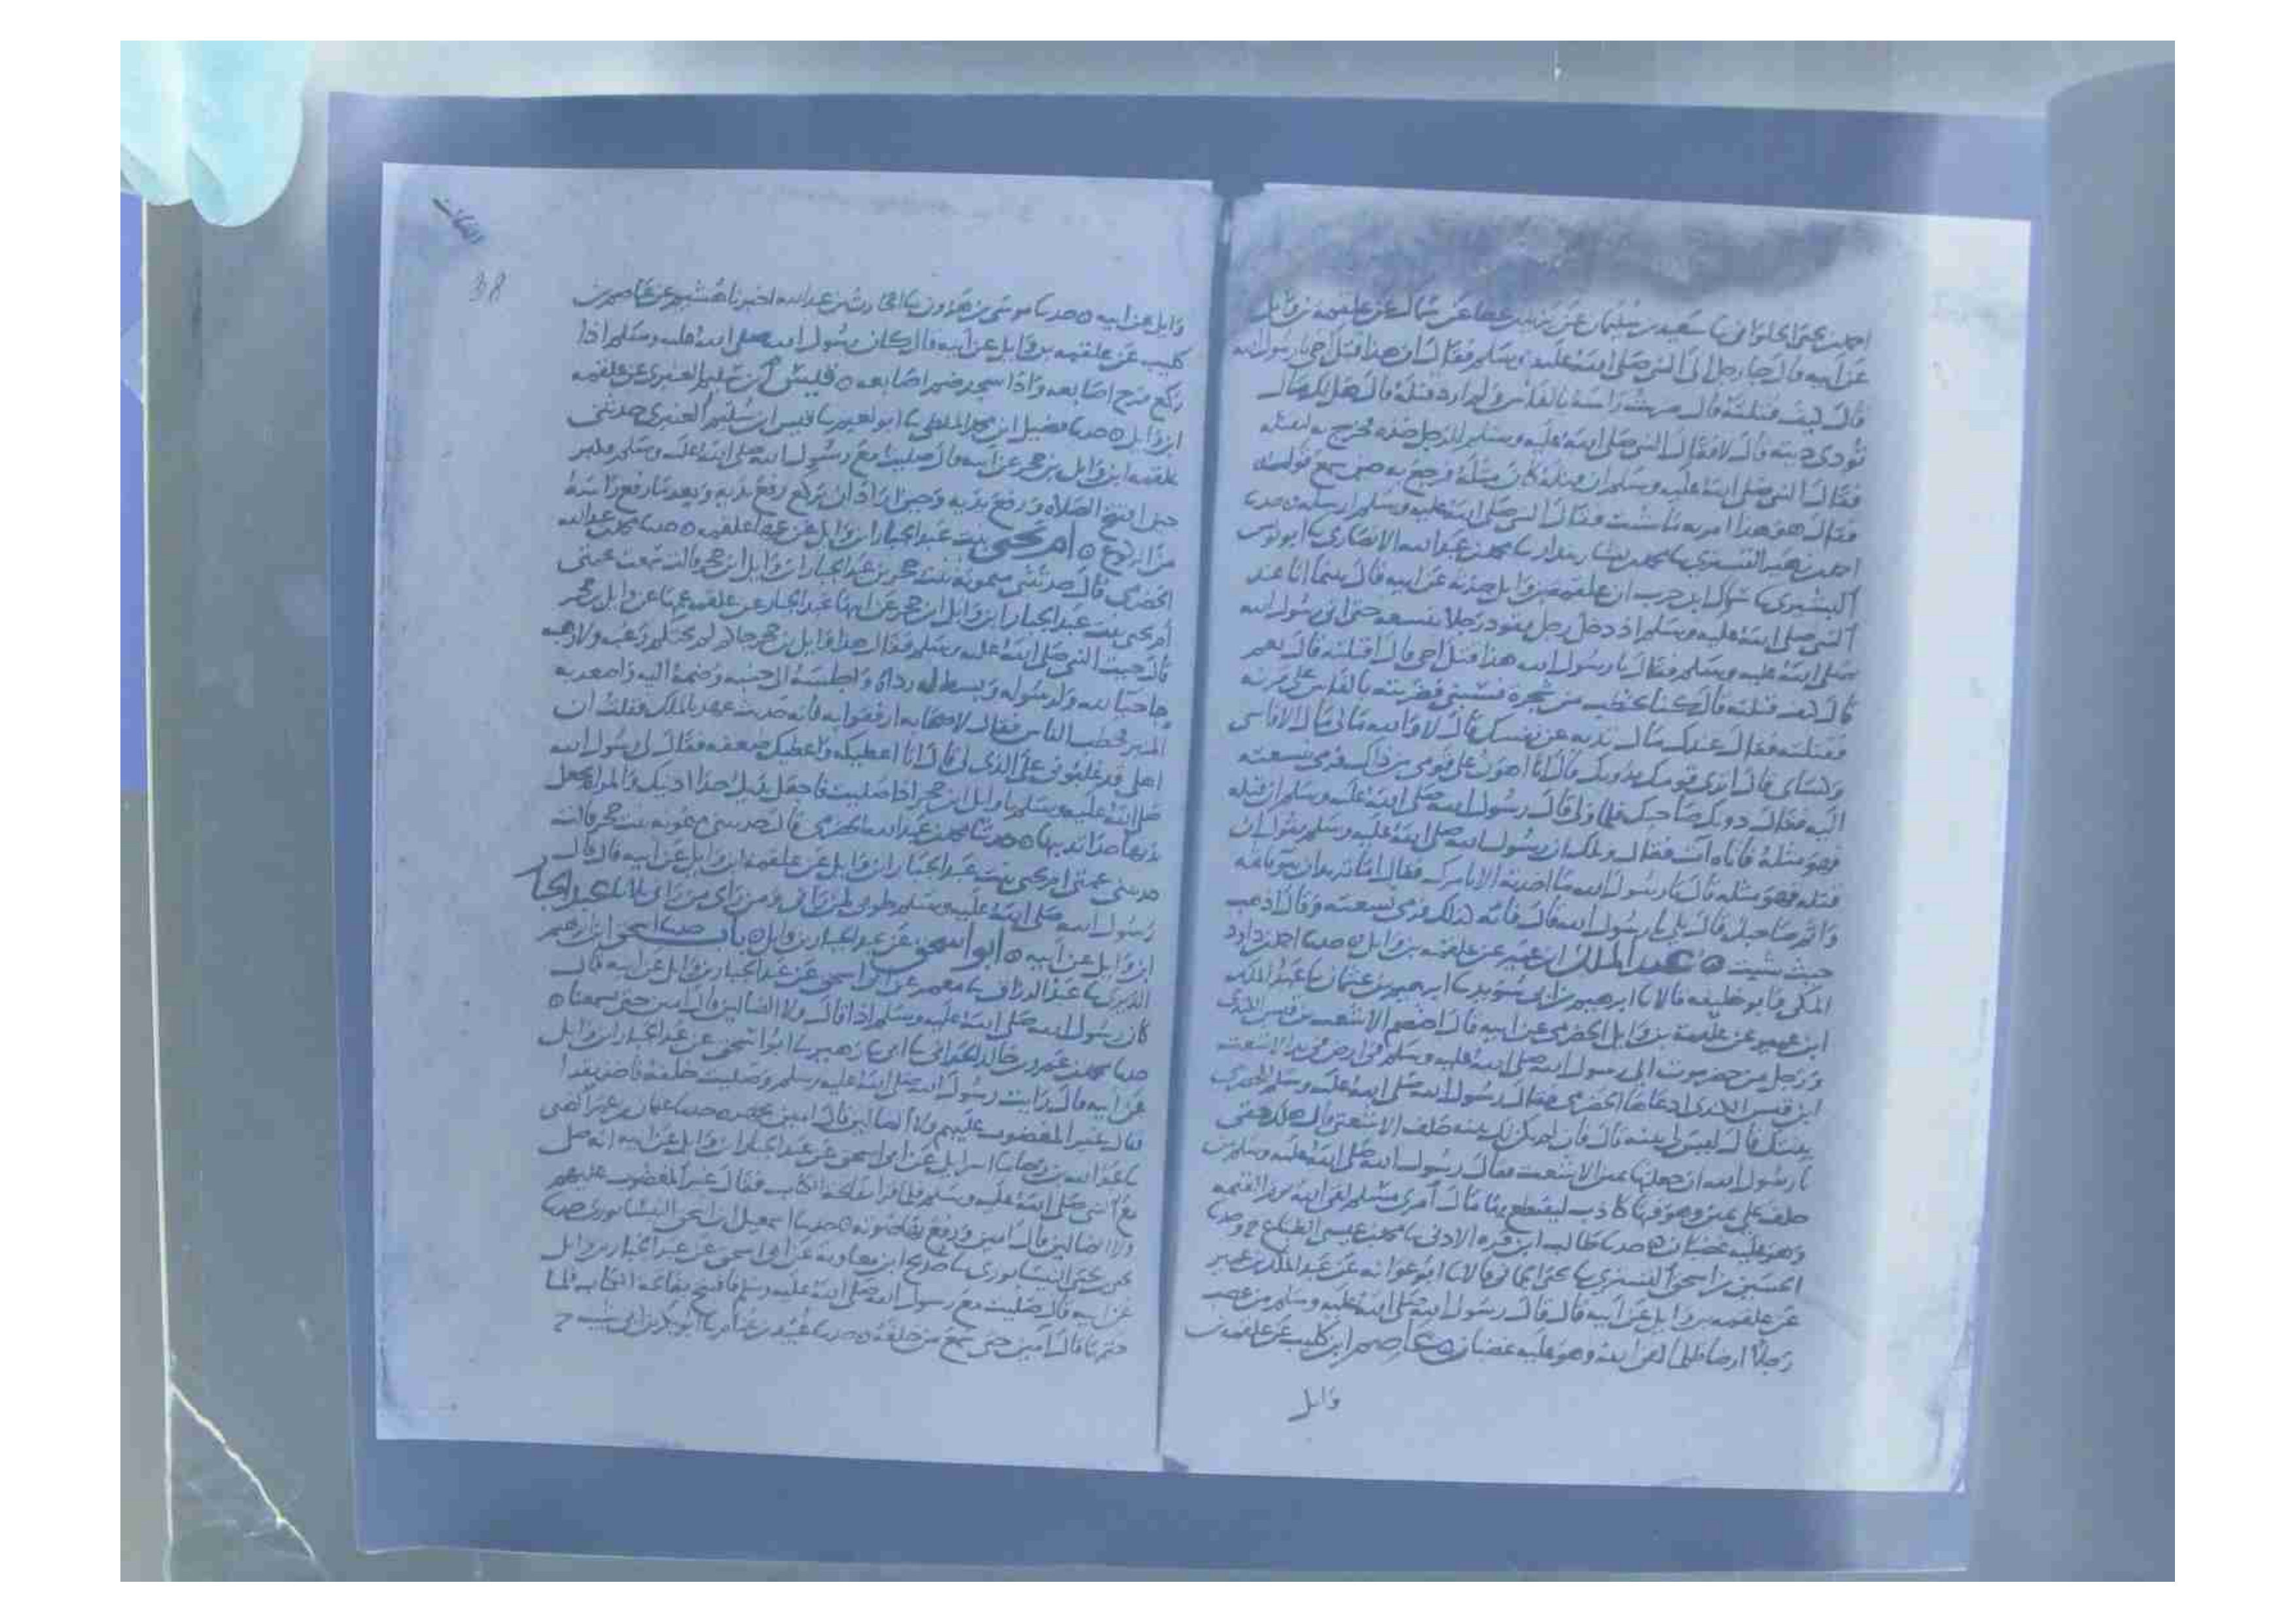 احمد بن يحيى الحلواني نا سعيد بن سليمان عن يزيد بن عطا عن سماك عن علقمه بن وايل
عن ابيه قال جا رجل الى النبي صلى الله عليه وسلم فقال ان هذا قتل اخي يا رسول الله
قال كيف قتلته قال ضربت راسه بالفاس ولم ارد قتله قال هل لك مال
تودي ديته قال لا فقال النبي صلى الله عليه وسلم للرجل خذه فخرج به ليقتله
فقال النبي صلى الله عليه وسلم ان قتله كان مثله فرجع به حين سمع قوله
فقال هو هذا امر به ما شيت فقال النبي صلى الله عليه وسلم ارسله ه حدثنا
احمد بن زهير التستري نا محمد بن بشار بندار نا محمد بن عبد الله الانصاري نا ابو يونس
القشيري نا سماك ابن حرب ان علقمه بن وايل حدثه عن ابيه قال بينما انا عند
النبي صلى الله عليه وسلم اذ دخل رجل يقود رجلا بنسعه حتى اتى رسول الله
صلى الله عليه وسلم فقال يا رسول الله هذا قتل اخي قال اقتلته قال نعم
قال كيف قتلته قال كنا نحتطب من شجرة فسبني فضربته بالفاس على قرنه
فقتلته فقال عندك مال تديه عن نفسك قال لا والله مالي مال الا فاسي
وكساي قال اترى قومك يدونك قال انا اهون على قومي من ذاك فرمى بنسعته
اليه فقال دونك صاحبك فلما ولى قال رسول الله صلى الله عليه وسلم ان قتله
فهو مثله فاتاه آت فقال ويلك ان رسول الله صلى الله عليه وسلم يقول ان
قتله فهو مثله قال يا رسول الله ما اخذته الا بامرك فقال اما تريد ان يبو باثمه
واثم صاحبك قال بلى يا رسول الله قال فانه كذلك فرمى بنسعته وقال اذهب
حيث شيت ه عبد الملك ابن عمير عن علقمه بن وايل ه حدثنا احمد بن داود
المكي وابو خليفه قالا نا ابرهيم بن ابي سويد نا ابرهيم بن عثمان نا عبد الملك
ابن عمير عن علقمة بن وايل الحضرمي عن ابيه قال اختصم الاشعث بن قيس الكندي
ورجل من حضرموت الى رسول الله صلى الله عليه وسلم في ارض في يد الاشعث
ابن قيس الكندي ادعاها الحضرمي فقال رسول الله صلى الله عليه وسلم للحضرمي
بينتك قال ليس لي بينه قال فان لم يكن لك بينه حلف الاشعث قال هلك حقي
يا رسول الله ان جعلتها يمين الاشعث فقال رسول الله صلى الله عليه وسلم من
حلف على يمين وهو فيها كاذب ليقتطع بها مال امرئ مسلم لقي الله يوم القيمه
وهو عليه غضبان ه حدثنا طالب ابن قره الادني نا محمد بن عيسى الطباع ح وحدثنا
الحسين بن اسحق التستري نا يحيى الحماني قالا نا ابو عوانه عن عبد الملك بن عمير
عن علقمه بن وايل عن ابيه قال قال رسول الله صلى الله عليه وسلم من غصب
رجلا ارضا ظلما لقي الله وهو عليه غضبان ه عاصم ابن كليب عن علقمه بن
وايل
38
وايل عن ابيه ه حدثنا موسى بن هرون نا الحارث بن عبد الله اخبرنا هشيم عن عاصم بن
كليب عن علقمه بن وايل عن ابيه قال كان رسول الله صلى الله عليه وسلم اذا
ركع فرج اصابعه واذا سجد ضم اصابعه ه قيس ابن سليم العنبري عن علقمه
ابن وايل ه حدثنا فضيل ابن محمد الملطي نا ابو نعيم نا قيس ابن سليم العنبري حدثني
علقمه ابن وايل بن حجر عن ابيه قال صليت مع رسول الله صلى الله عليه وسلم فكبر
حين افتتح الصلاه ورفع يديه وحين اراد ان يركع رفع يديه وبعد ما رفع راسه
من الركوع ه ام يحيى بنت عبد الجبار ابن وايل عن عمها علقمه ه حدثنا محمد بن عبد الله
الحضرمي قال حدثتني ميمونه بنت حجر بن عبد الجبار ابن وايل ابن حجر قالت سمعت عمتي
ام يحيى بنت عبد الجبار ابن وايل ابن حجر عن ابيها عبد الجبار عن علقمه عمها عن وايل بن حجر
قال جيت النبي صلى الله عليه وسلم فقال هذا وايل بن حجر جاكم لم يجئكم رغبه ولا رهبه
جا حبا لله ولرسوله وبسط له رداه واجلسه الى جنبه وضمه اليه واصعد به
المنبر فخطب الناس فقال لاصحابه ارفقوا به فانه حديث عهد بالملك فقلت ان
اهلي قد غلبوني على الذي لي قال انا اعطيكه واعطيك ضعفه فقال لي رسول الله
صلى الله عليه وسلم يا وايل ابن حجر اذا صليت فاجعل يديك حذا اذنيك والمراه تجعل
يديها حذا ثدييها ه حدثنا محمد بن عبد الله الحضرمي قال حدثتني ميمونه بنت حجر قالت
حدثتني عمتي ام يحيى بنت عبد الجبار ابن وايل عن علقمه ابن وايل عن ابيه قال قال
رسول الله صلى الله عليه وسلم طوبى لمن راني ومن راى من راني ثلاثا عبد الجبار
ابن وايل عن ابيه ه ابو اسحق عن عبد الجبار بن وايل ه باب حدثنا اسحق ابن ابرهيم
الدبري نا عبد الرزاق نا معمر عن ابي اسحق عن عبد الجبار بن وايل عن ابيه قال
كان رسول الله صلى الله عليه وسلم اذا قال ولا الضالين قال امين حتى يسمعنا ه
حدثنا محمد بن عمرو بن خالد الحراني نا ابي نا زهير نا ابو اسحق عن عبد الجبار ابن وايل
عن ابيه قال رايت رسول الله صلى الله عليه وسلم وصليت خلفه
فقال غير المغضوب عليهم ولا الضالين قال امين يجهر ه حدثنا عثمان بن عمر الضبي
نا عبد الله بن رجا نا اسرايل عن ابي اسحق عن عبد الجبار ابن وايل عن ابيه انه صلى
مع النبي صلى الله عليه وسلم فلما قرا فاتحة الكتاب فقال غير المغضوب عليهم
ولا الضالين قال امين ورفع بها صوته ه حدثنا اسمعيل ابن اسحق النيسابوري حدثنا
يحيى بن يحيى النيسابوري نا حديج ابن معاويه عن ابي اسحق عن عبد الجبار بن وايل
عن ابيه قال صليت مع رسول الله صلى الله عليه وسلم فافتتح بفاتحة الكتاب فلما
ختمها قال آمين حتى سمع من خلفه ه حدثنا عبيد بن غنام نا ابو بكر بن ابي شيبه ح